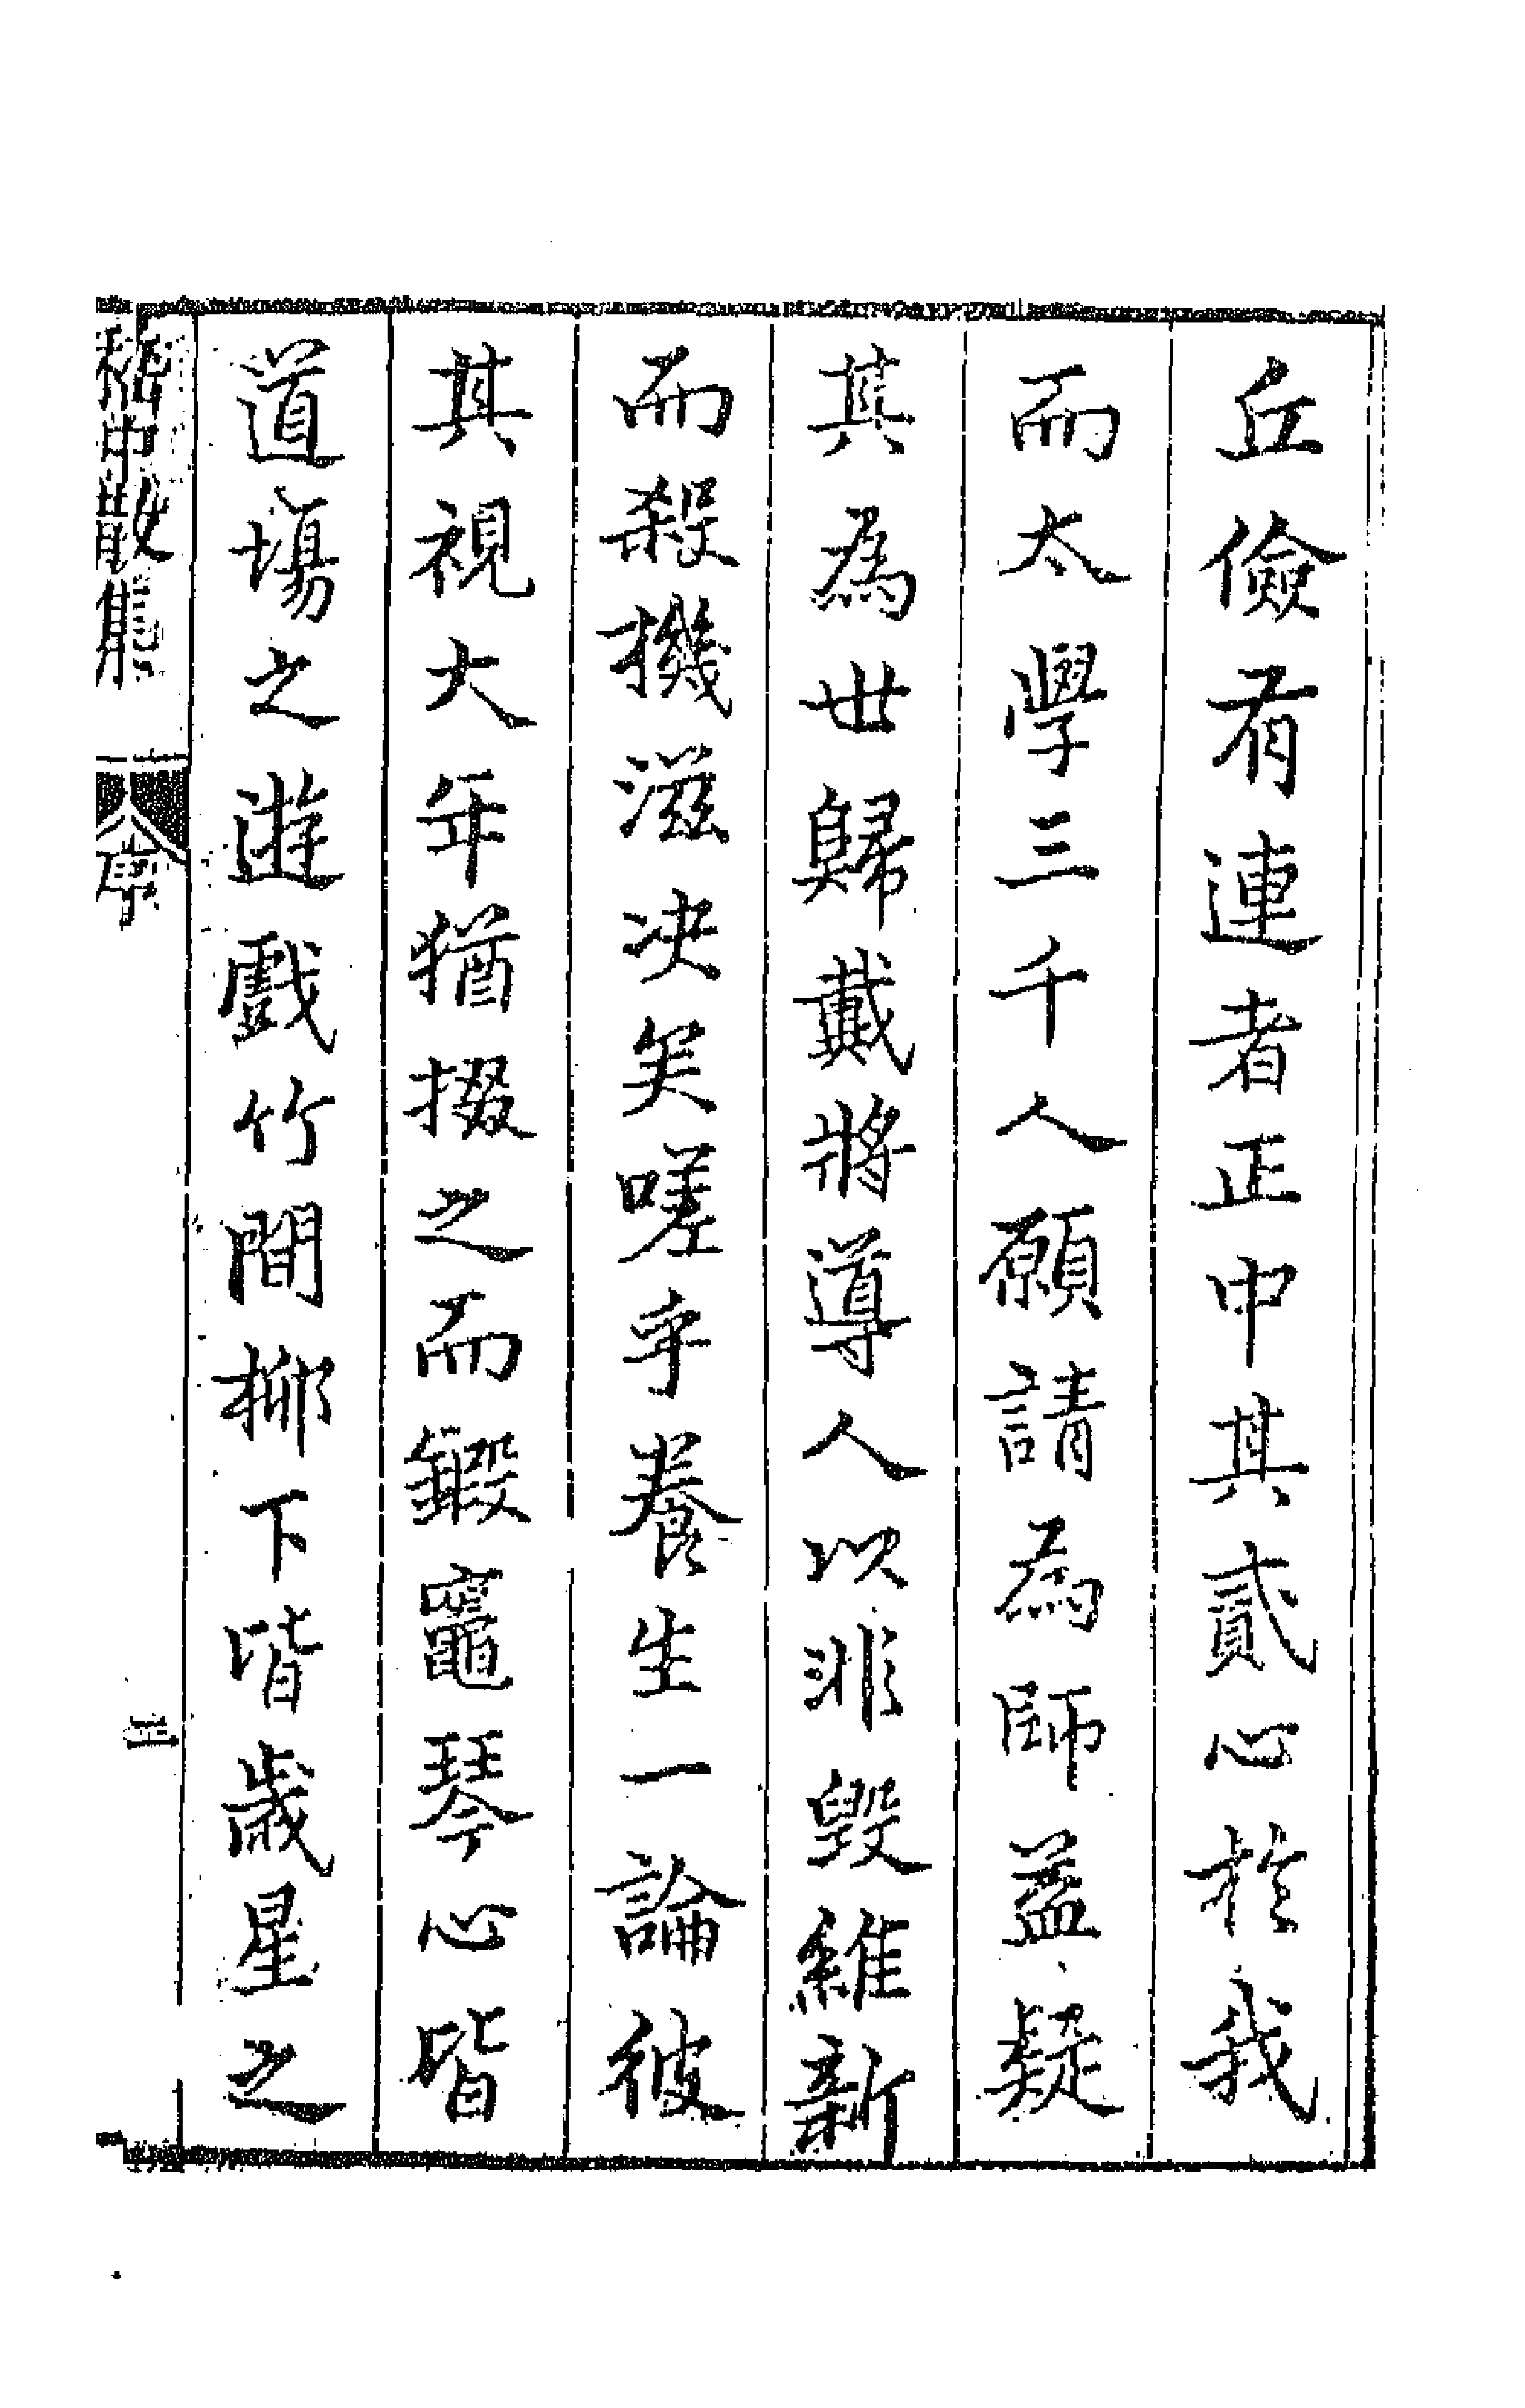 丘儉有連者正中其貳心於我
而太學三千人願請為師益疑
其為世歸戴將導人以非毀維新
而殺機滋决矣嗟乎養生一論彼
其視大年猶掇之而鍛竈琴心皆
道場之遊戲竹間柳下皆歲星之
嵇中散集 序 三